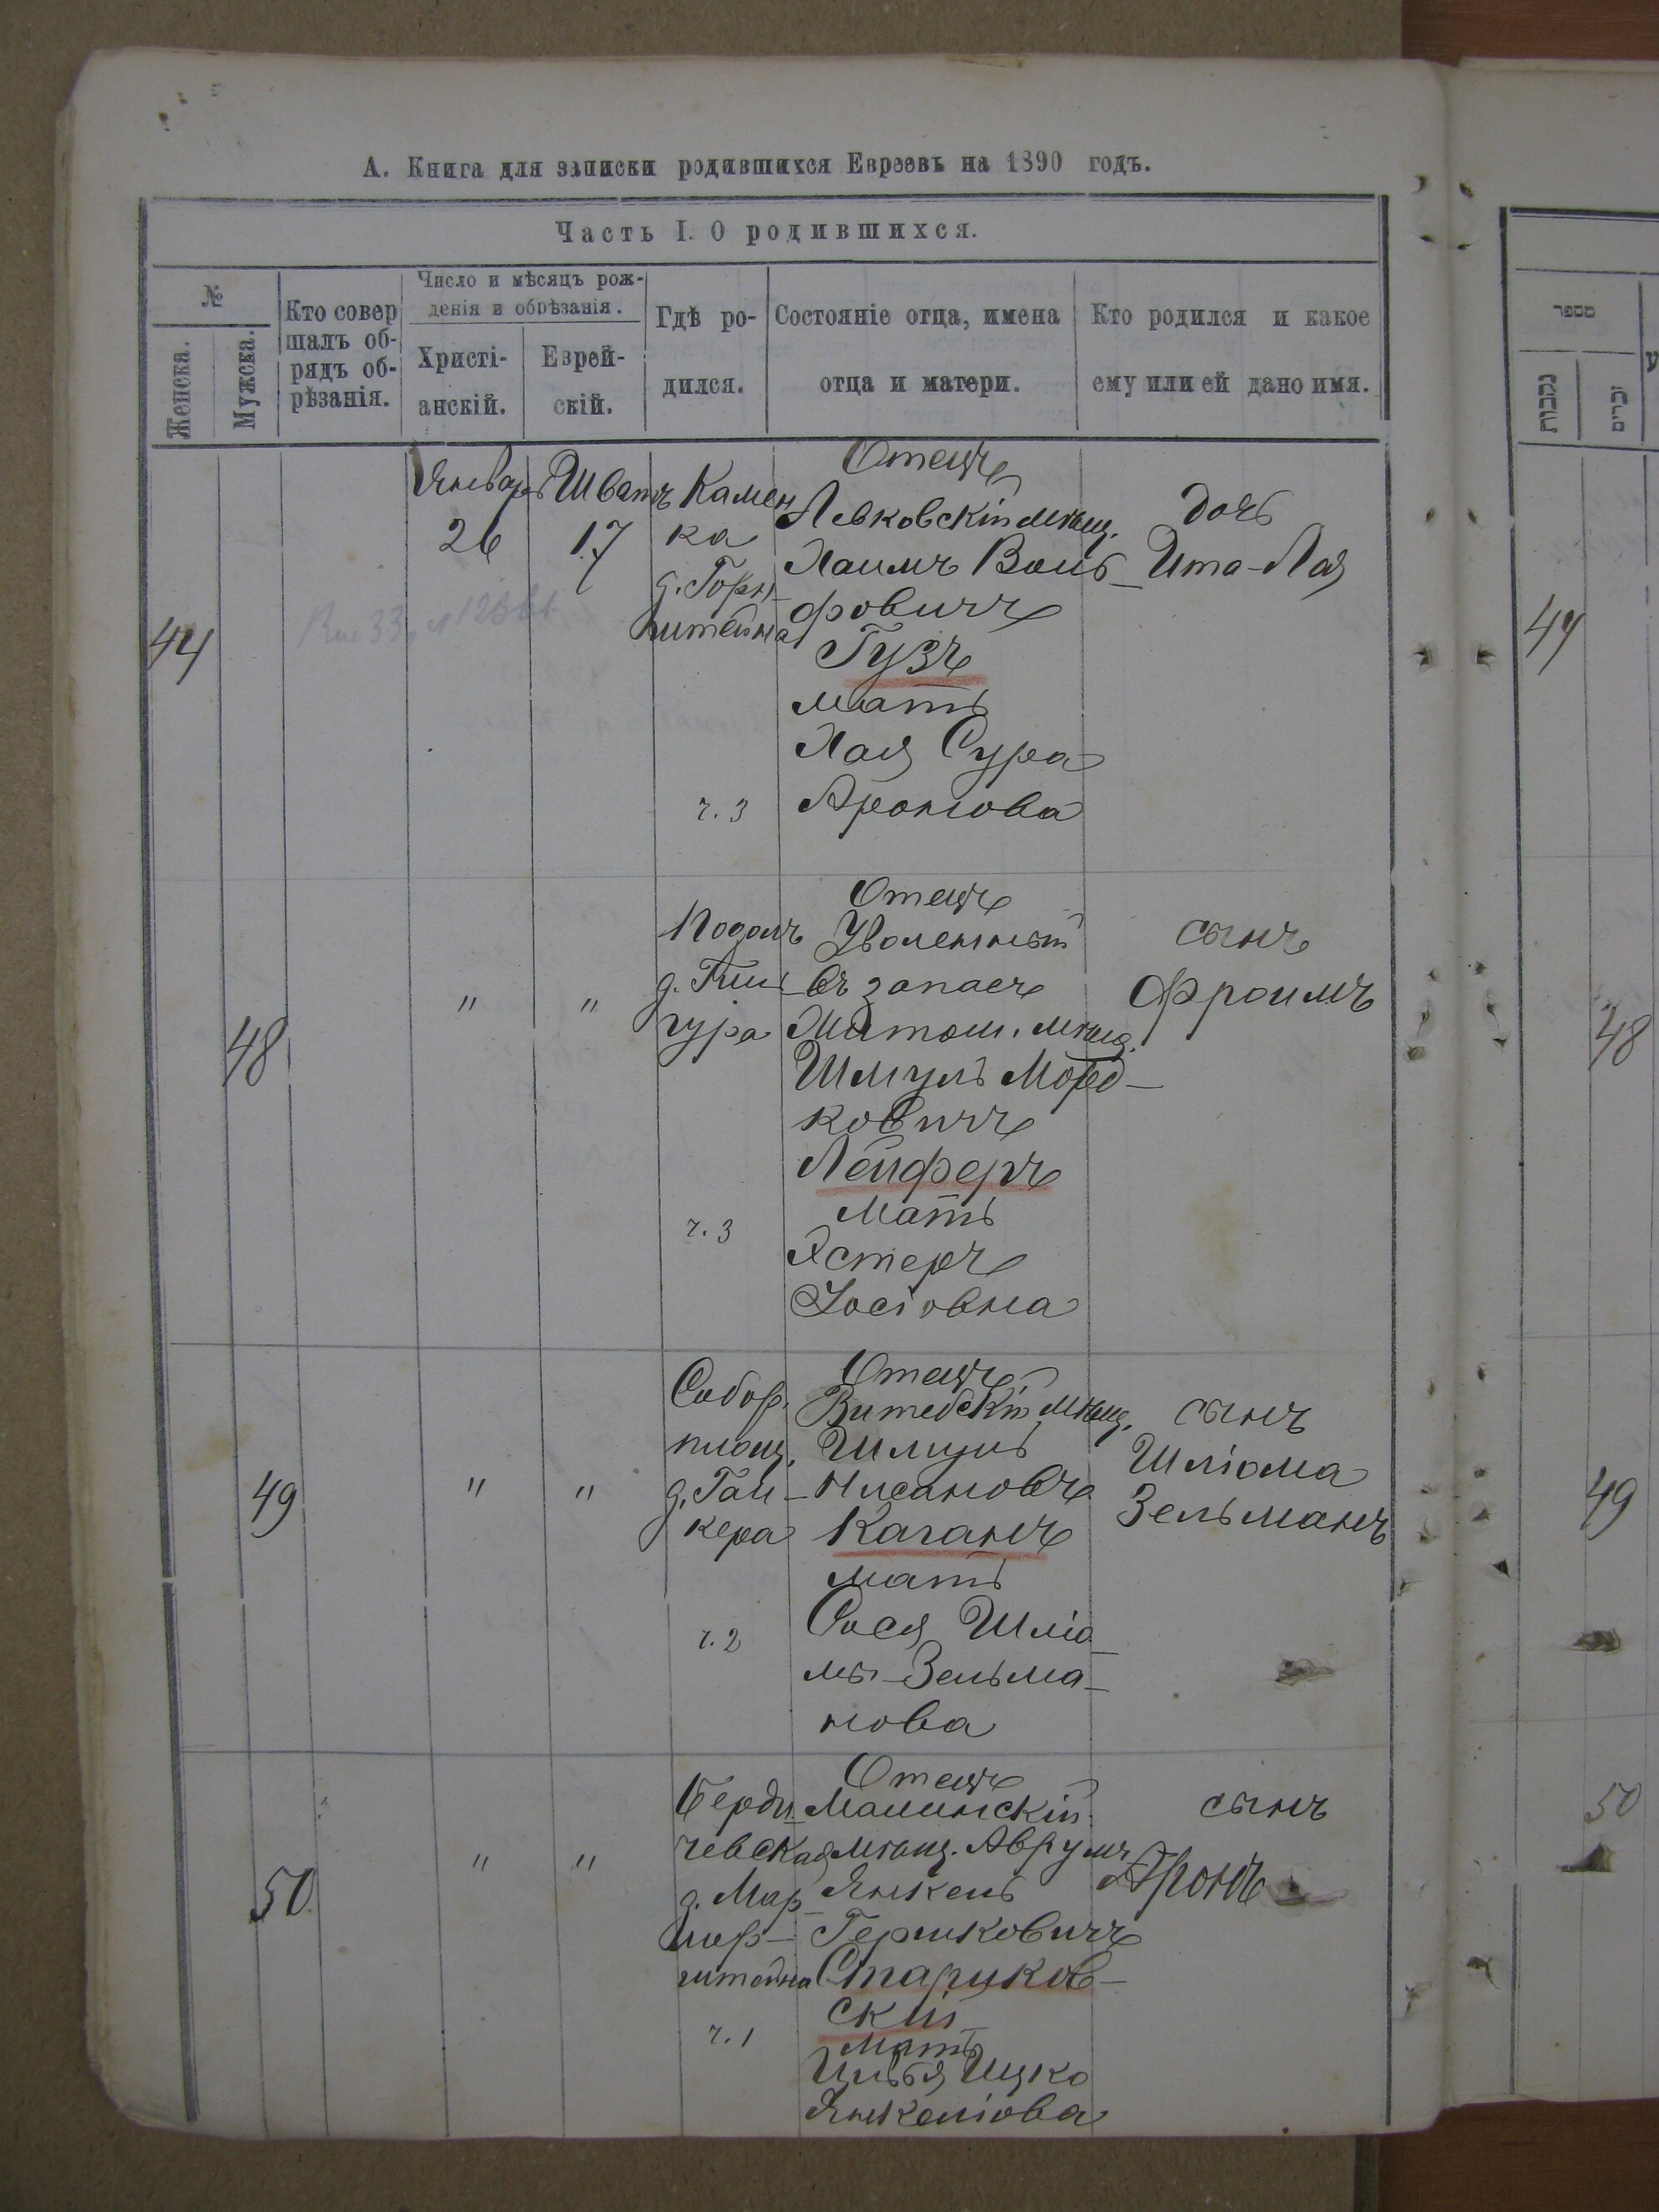 А. Книга для записки родившихся Евреевъ на 1890 годъ.
Часть I. О родившихся.
№
Женска.
Мужска.
Кто совер
шалъ об-
рядъ об-
рѣзанія.
Число и мѣсяцъ рож-
денія и обрѣзанія.
Христі-
анскій.
Еврей-
скій.
Гдѣ ро-
дился.
Состояніе отца, имена
отца и матери.
Кто родился и какое
ему или ей дано имя.
44
Январь
26
Шватъ
17
Камен
ка
д. Горн-
штейна
ч. 3
Отецъ
Левковскій мѣщ.
Хаимъ Воль-
фовичъ
Гузъ
мать
Хая Сура
Аронова
дочь
Ита-Лая
48
"
"
Подолъ
д. Гин-
гура
ч. 3
Отецъ
Уволенный
въ запасъ
мѣщ.
Шмуль Морд-
ковичъ
Лейферъ
мать
Эстеръ
Іосіовна
сынъ
Фроимъ
49
"
"
Собор.
площ.
д. Гай-
кера
ч. 2
Отецъ
Витебскій мѣщ.
Шмуль
Нисановъ
Каганъ
мать
Сося Шліо-
мы-Зельма-
нова
сынъ
Шліома
Зельманъ
50
"
"
Берди-
чевская
д. Мар-
шер-
штейна
ч. 1
Отецъ
Малинскій
мѣщ. Аврумъ
Янкель
Гершковичъ
Стариков-
скій
мать
Цивья Ицко
Янкеліова
сынъ
Аронъ
מספר
נקבות
זכרים
44
48
49
50